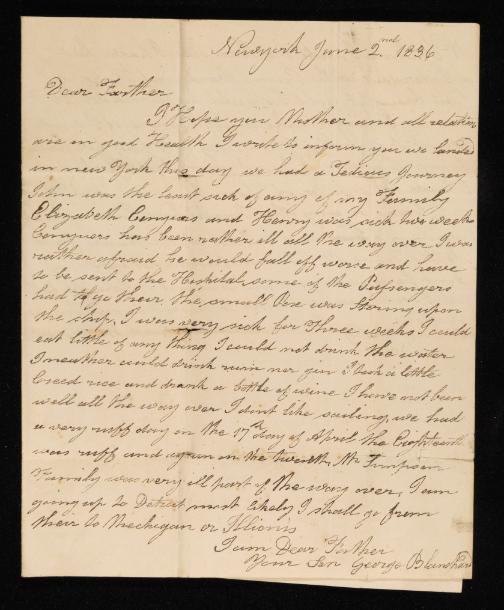 Newyork June 2nd 1836
Dear Farther
I Hope you Mother and all relation
are in good Health I write to inform you we landed
in new York this day we had a Tedious Journey
John was the least sick of any of my Family
Elizabeth Conyars and Henry was sick two weeks
Conyuers has been rather ill all the way over I was
rather afraid he would fall off worse and have
to be sent to the Hospital some of the Passengers
had to go their the small Pox was strong upon
the ship, I was very sick for three weeks I could
eat little of any thing I could not drink the water
I neather could drink rum nor gin I took a little
biled rice and drank a little of wine I have not been
well all the way over I dont like sailing, we had
a very ruff day on the 17th day of April the Eighteenth
was ruff and again on the twenth, Mr
Family was very ill part of the way over, I am
going up to Detroit most likely I shall go from
their to Mechigan or Illionis
I am Dear Farther
Your Son George Blanshard